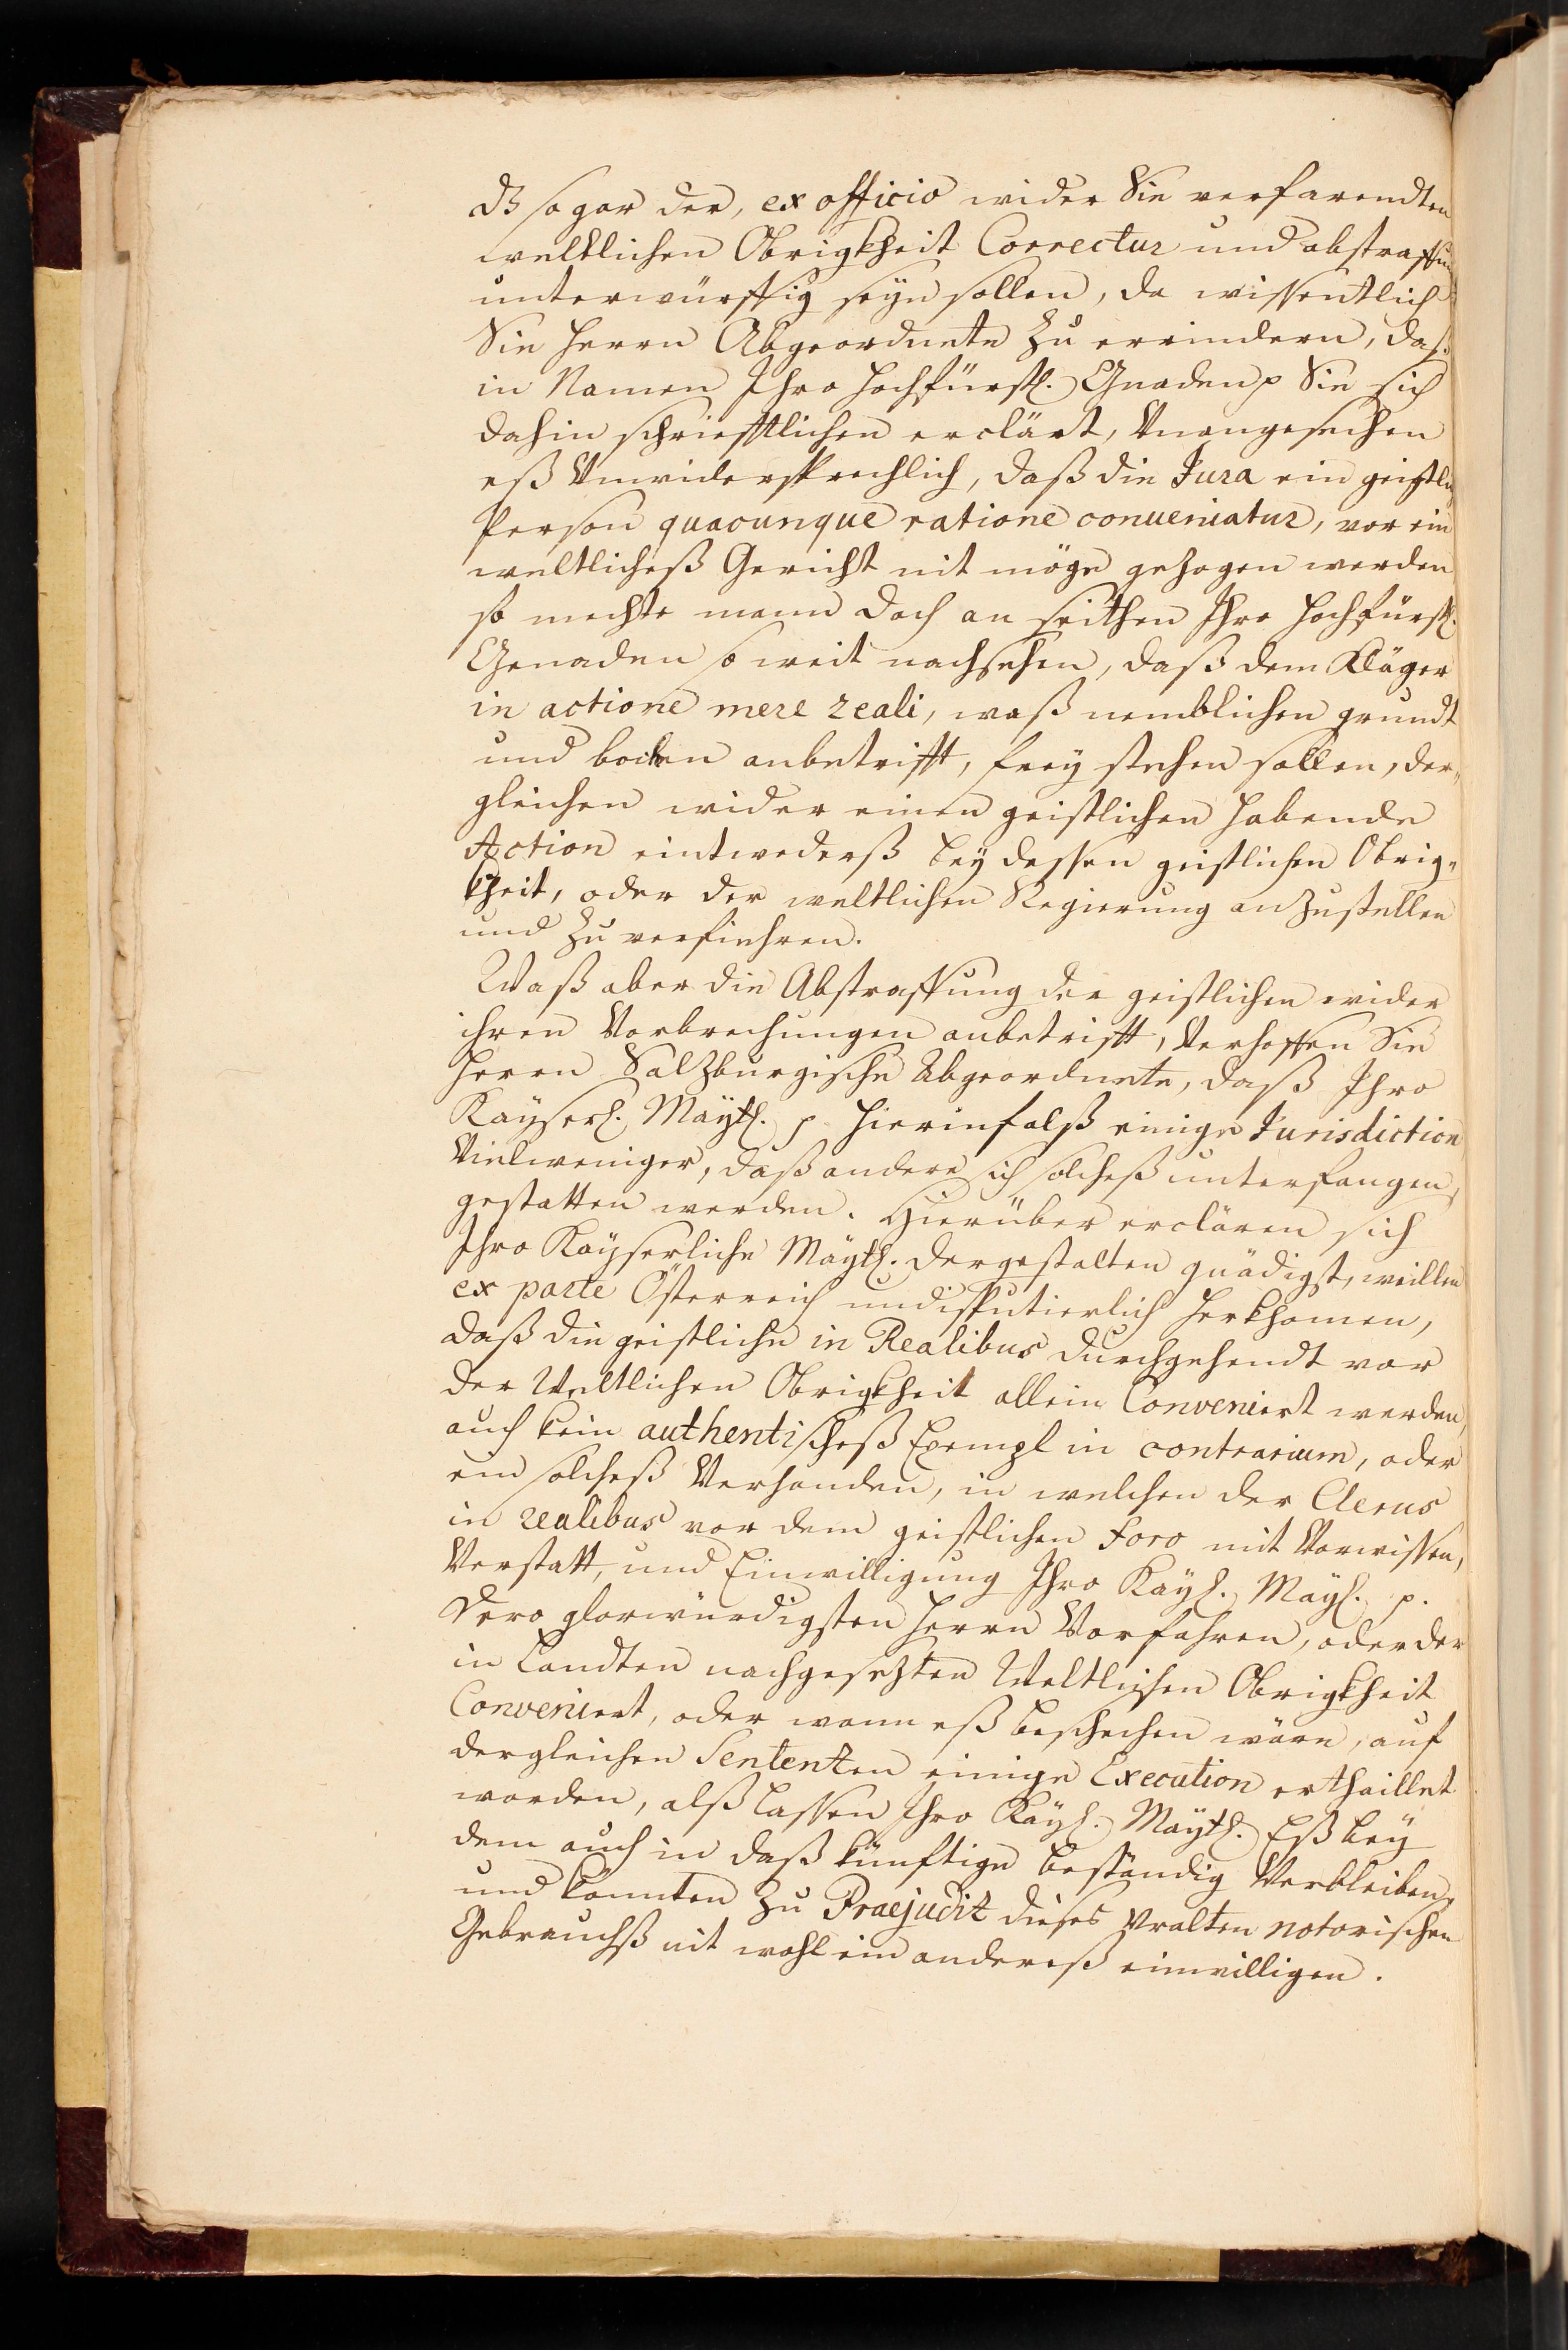 dß sogar der, ex officio wider Sie verfarendten
weltlichen Obrigkheit Correctur und abstraffung
unterwürffig seyn sollen, da wissentlich
Sie Herrn Abgeordnete zu erindern, daß
in Namen Ihro Hochfürstl. Gnaden p Sie sich
dahin schriefftlichen erclärt, Unangesechen
eß Unwidersprechlich, daß die Jura ein geistle
Person quacunque ratione conueniatur, vor ein
weltlicheß Gericht nit möge gezogen werden
so mechte mann doch an seithen Ihro Hochfürstl.
Genaden so weit nachsehen, daß dem Kläger
in actione mere reali, waß nemblichen grundt
und boden anbetrifft, frey stehen sollen, der„
gleichen wider einen geistlichen habende
Action eintwederß bey dessen geistlichen Obrig„
kheit, oder der weltlichen Regierung anzustellen
und zu verfiehren.
Waß aber die Abstraffung der geistlichen wider
ihren Verbrechungen anbetrifft, Verhoffen Sie
Herrn Salzburgische Abgeordnete, daß Ihro
Kayserl. Maytl. p hierinfalß einige Jurisdiction
Vielweniger, daß andere sich solcheß unterfangen,
gestatten werden. Hierüber erclären sich
Ihro Kayserliche Maytl. dergestalten gnädigst, weillen
ex parte Österreich undisputierlich herkhomen,
daß die geistliche in Realibus durchgehendt vor
der Weltlichen Obrigkheit allein Conveniert werden,
auch kein authentischeß Exempl in contrarium, oder
ein solcheß Verhanden, in welchen der Clerus
in realibus vor dem geistlichen Foro mit Vorwissen,
Verstatt, und Einwilligung Ihro Kayl. Mayl. p.
Dero glorwürdigsten Herrn Vorfahren, oder der
in Landten nachgesezten Weltlichen Obrigkheit
Conveniert, oder wann eß beschehen wäre, auf
dergleichen Sententzen einige Execution erthaillet
worden, alß lassen Ihro Kayl. Maytl. Eß bey
dem auch in daß künftige beständig Verbleiben,
und könnten zu Praejudiz dieses Vralten notorischen
Gebrauchß nit wohl ein andereß einwilligen.